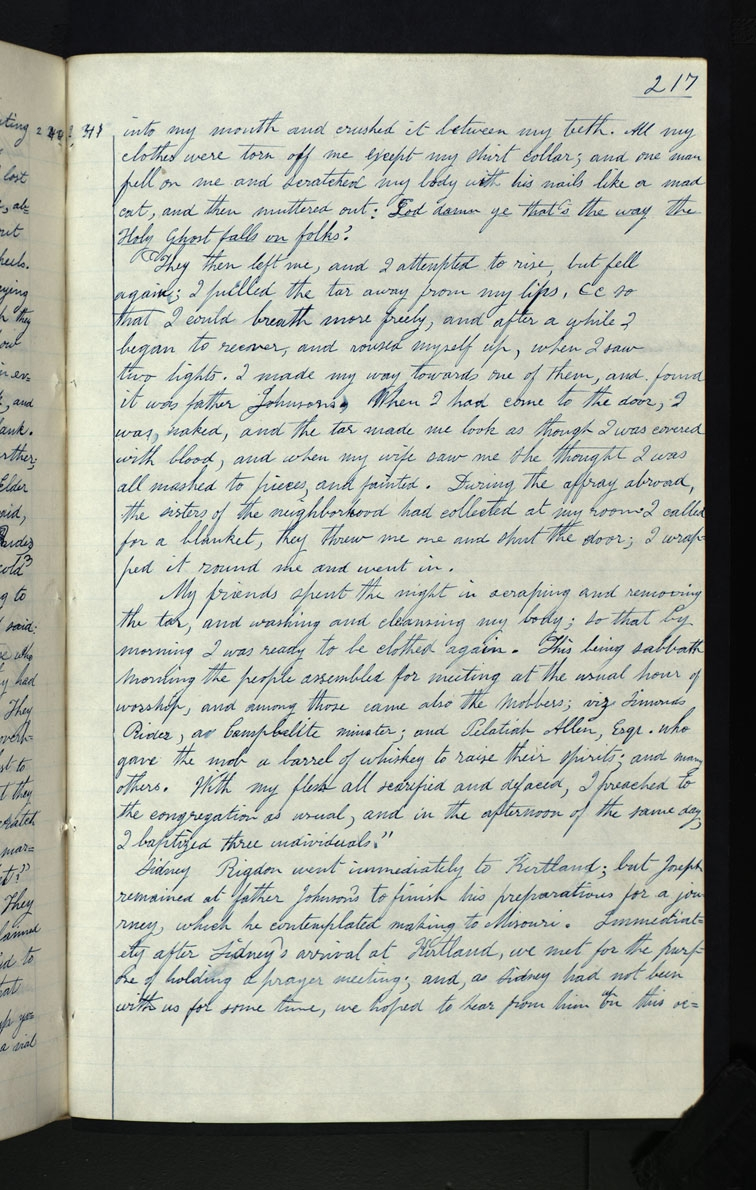 217
into my mouth and crushed it between my teeth. All my
clothes were torn off me except my shirt collar; and one man
fell on me and scratched my body with his nails like a mad
cat, and then muttered out: God damn ye that's the way the
Holy Ghost falls on folks?
They then left me, and I attempted to rise, but fell
again; I pulled the tar away from my lips, &c so
that I could breath more freely, and after a while I
began to recover, and roused myself up, when I saw
two lights. I made my way towards one of them, and found
it was father Johnsons. When I had come to the door, I
was, naked, and the tar made me look as though I was covered
with blood, and when my wife saw me she thought I was
all mashed to pieces, and fainted. During the affray abroad,
the sisters of the neighborhood had collected at my room. I called
for a blanket, they threw me one and shut the door; I wrap=
ped it round me and went in.
My friends spent the night in scraping and removing
the tar, and washing and cleansing my body; so that by
morning I was ready to be clothed again. This being sabbath
morning the people assembled for meeting at the usual hour of
worship, and among those came also the Mobbers; viz Simonds
Rider, a Campbelite minster; and Pelatiah Allen, Esqr. who
gave the mob a barrel of whiskey to raise their spirits; and many
others. With my flesh all scarified and defaced, I preached to
the congregation as usual, and in the afternoon of the same day,
I baptized three individuals."
Sidney Rigdon went immediately to Kirtland; but Joseph
remained at father Johnson's to finish his preparations for a jou
rney, which he contemplated making to Misouri. Immediat=
ely after Sidney's arrival at Kirtland, we met for the purp=
ose of holding a prayer meeting; and, as Sidney had not been
with us for some time, we hoped to hear from him on this oc=